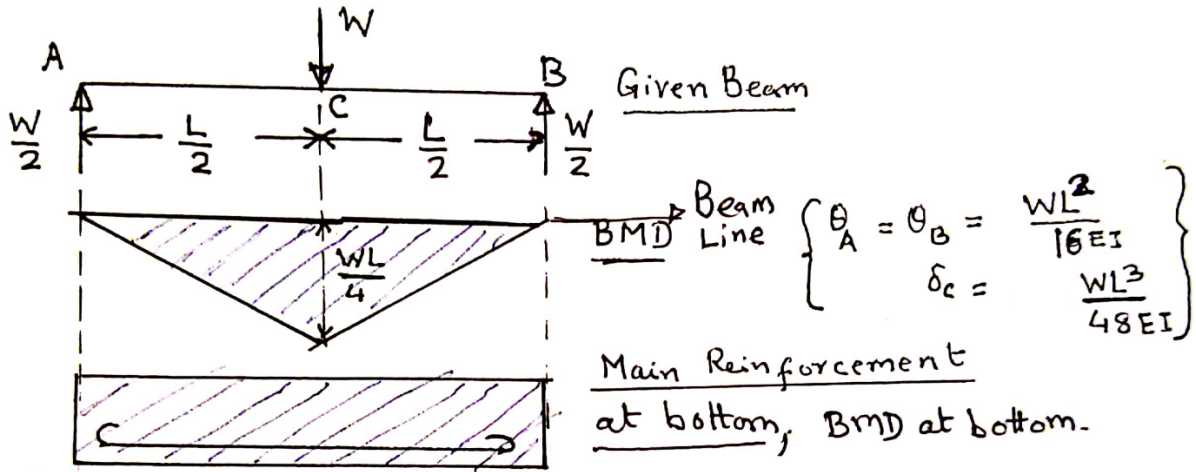 W
A
B
Given Beam
C
W/2
L/2
L/2
W/2
Beam
BMD Line
{ θA = θB = WL²/16EI
δc = WL³/48EI }
WL/4
Main Reinforcement
at bottom, BMD at bottom.